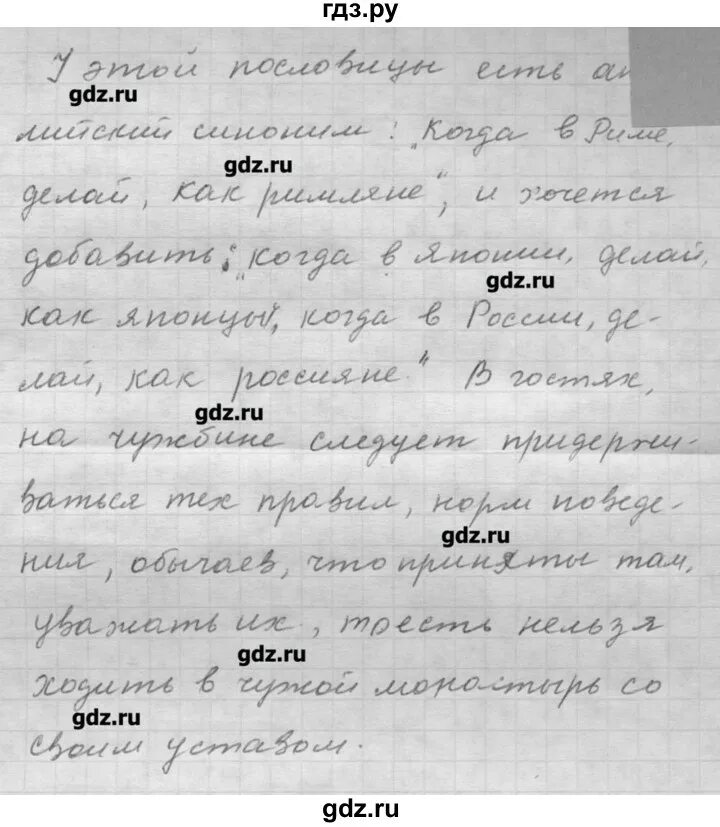 гдз.ру
У этой пословицы есть ан
gdz.ru
лийский синоним: „Когда в Риме,
gdz.ru
делай, как римляне", и хочется
добавить: „когда в Японии, делай,
gdz.ru
как японцы, когда в России, де-
лай, как россияне." В гостях,
gdz.ru
на чужбине следует придержи-
ваться тех правил, норм поведе-
gdz.ru
ния, обычаев, что приняты там,
уважать их, то есть нельзя
gdz.ru
ходить в чужой монастырь со
gdz.ru
своим уставом.
gdz.ru